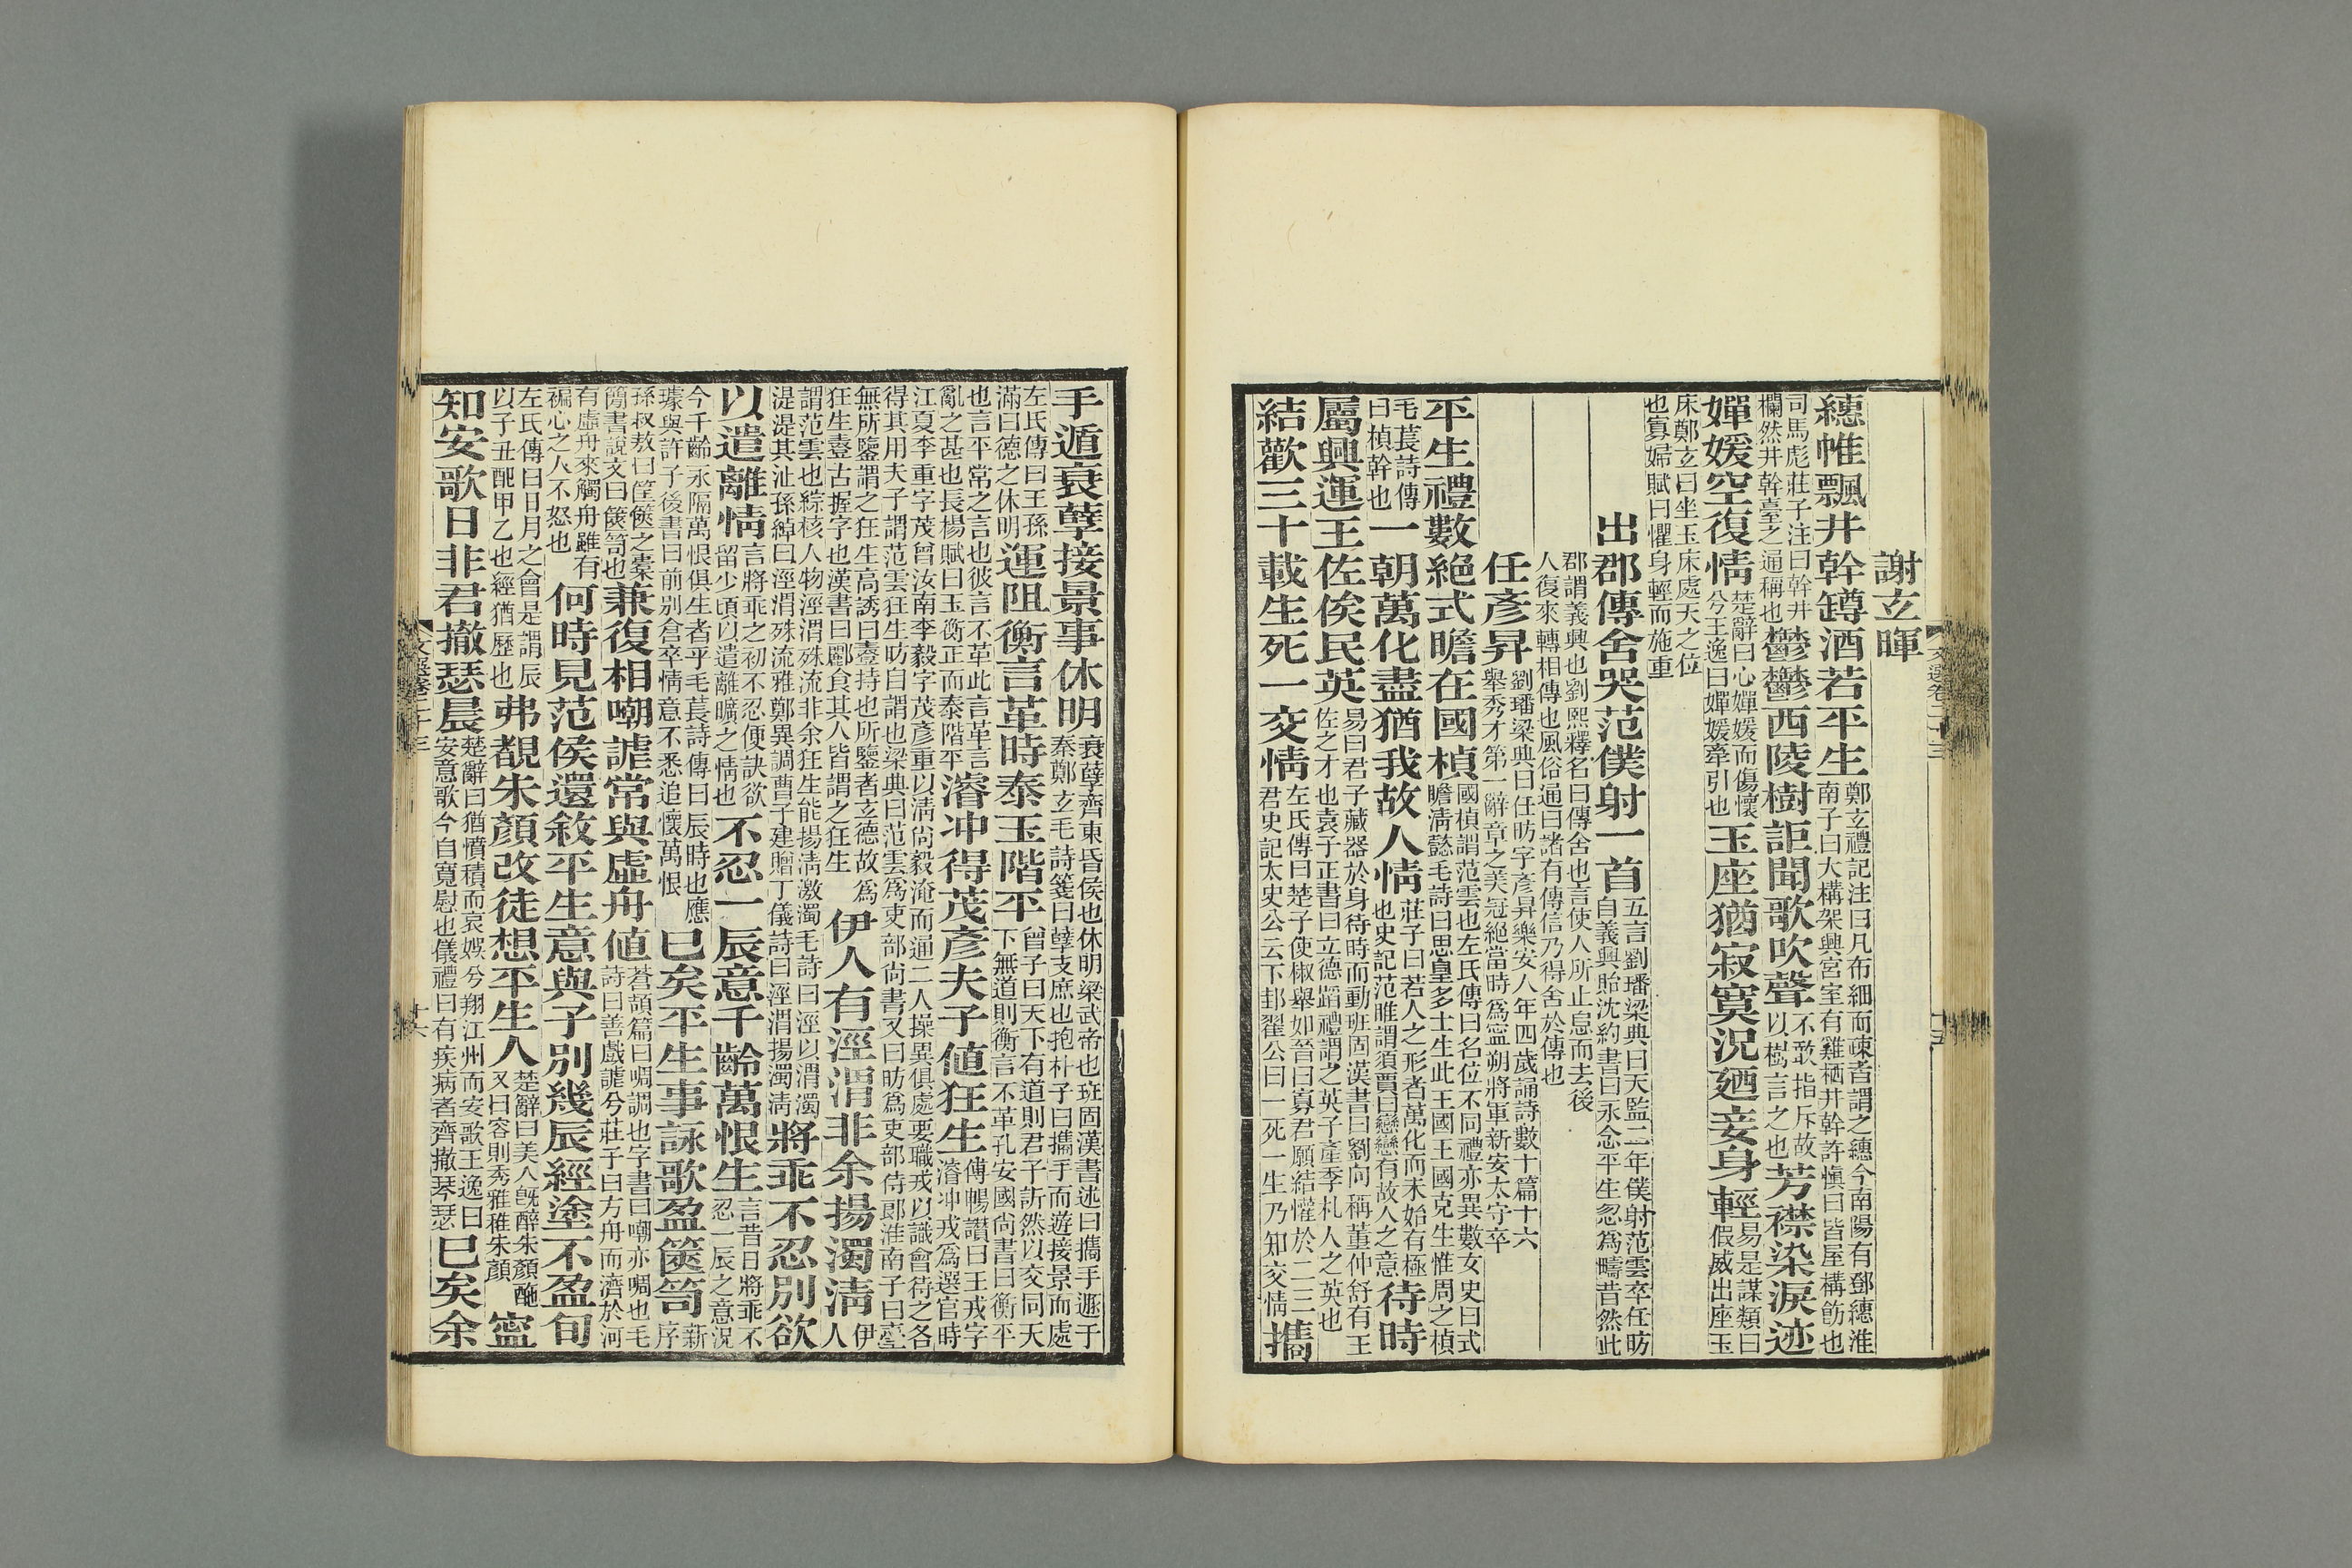 謝玄暉
繐帷飄井幹罇酒若平生鄭玄禮記注曰凡布細而疎者謂之繐今南陽有鄧繐淮南子曰大構架興宮室有雞栖井幹許愼曰皆屋構飭也
司馬彪莊子注曰幹井欄然井幹臺之通稱也鬱鬱西陵樹詎聞歌吹聲不敢指斥故以樹言之也芳襟染淚迹
嬋媛空復情楚辭曰心嬋媛而傷懷兮王逸曰嬋媛牽引也玉座猶寂寞況廼妾身輕易是謀類曰假威出座玉
床鄭玄曰坐玉床處天之位也寡婦賦曰懼身輕而施重
出郡傳舍哭范僕射一首五言劉璠梁典曰天監二年僕射范雲卒任昉自義興貽沈約書曰永念平生忽爲疇昔然此
郡謂義興也劉熙釋名曰傳舍也言使人所止息而去後人復來轉相傳也風俗通曰諸有傳信乃得舍於傳也
任彥昇劉璠梁典曰任昉字彥昇樂安人年四歲誦詩數十篇十六舉秀才第一辭章之美冠絕當時爲寧朔將軍新安太守卒
平生禮數絕式瞻在國楨國楨謂范雲也左氏傳曰名位不同禮亦異數女史曰式瞻淸懿毛詩曰思皇多士生此王國王國克生惟周之楨
毛萇詩傳曰楨幹也一朝萬化盡猶我故人情莊子曰若人之形者萬化而未始有極也史記范睢謂須賈曰戀戀有故人之意待時
屬興運王佐俟民英易曰君子藏器於身待時而動班固漢書曰劉向稱董仲舒有王佐之才也袁子正書曰立德蹈禮謂之英子產季札人之英也
結歡三十載生死一交情左氏傳曰楚子使椒舉如晉曰寡君願結懽於二三君史記太史公云下邽翟公曰一死一生乃知交情攜
手遁衰孽接景事休明衰孽齊東昏侯也休明梁武帝也班固漢書述曰攜手遯于秦鄭玄毛詩箋曰孽支庶也抱朴子曰攜手而遊接景而處
左氏傳曰王孫滿曰德之休明運阻衡言革時泰玉階平曾子曰天下有道則君子訢然以交同天下無道則衡言不革孔安國尚書曰衡平
也言平常之言也彼言不革此言革言亂之甚也長楊賦曰玉衡正而泰階平濬冲得茂彥夫子値狂生傅暢讚曰王戎字濬冲戎爲選官時
江夏李重字茂曾汝南李毅字茂彥重以淸尚毅淹而通二人操異俱處要職戎以識會待之各得其用夫子謂范雲狂生昉自謂也梁典曰范雲爲吏部尚書又曰昉爲吏部侍郎淮南子曰臺
無所鑒謂之狂生高誘曰臺持也所鑒者玄德故爲狂生臺古握字也漢書曰酈食其人皆謂之狂生伊人有涇渭非余揚濁淸伊人
謂范雲也綜核人物涇渭殊流非余狂生能揚淸激濁毛詩曰涇以渭濁湜湜其沚孫綽曰涇渭殊流雅鄭異調曹子建贈丁儀詩曰涇渭揚濁淸將乖不忍別欲
以遣離情言將乖之初不忍便訣欲留少頃以遣離曠之情也不忍一辰意千齡萬恨生言昔日將乖不忍一辰之意況
今千齡永隔萬恨俱生者乎毛萇詩傳曰辰時也應璩與許子後書曰前別倉卒情意不悉追懷萬恨已矣平生事詠歌盈篋笥新序
孫叔敖曰筐篋之橐簡書說文曰篋笥也兼復相嘲謔常與虛舟値蒼頡篇曰啁調也字書曰嘲亦啁也毛詩曰善戲謔兮莊子曰方舟而濟於河
有虛舟來觸舟雖有褊心之人不怒也何時見范侯還敘平生意與子別幾辰經塗不盈旬
左氏傳曰日月之會是謂辰以子丑配甲乙也經猶歷也弗覩朱顏改徒想平生人楚辭曰美人旣醉朱顏酡又曰容則秀雅稚朱顏寧
知安歌日非君撤瑟晨楚辭曰猶憤積而哀娛兮翔江州而安歌王逸曰安意歌今自寬慰也儀禮曰有疾病者齊撤琴瑟已矣余